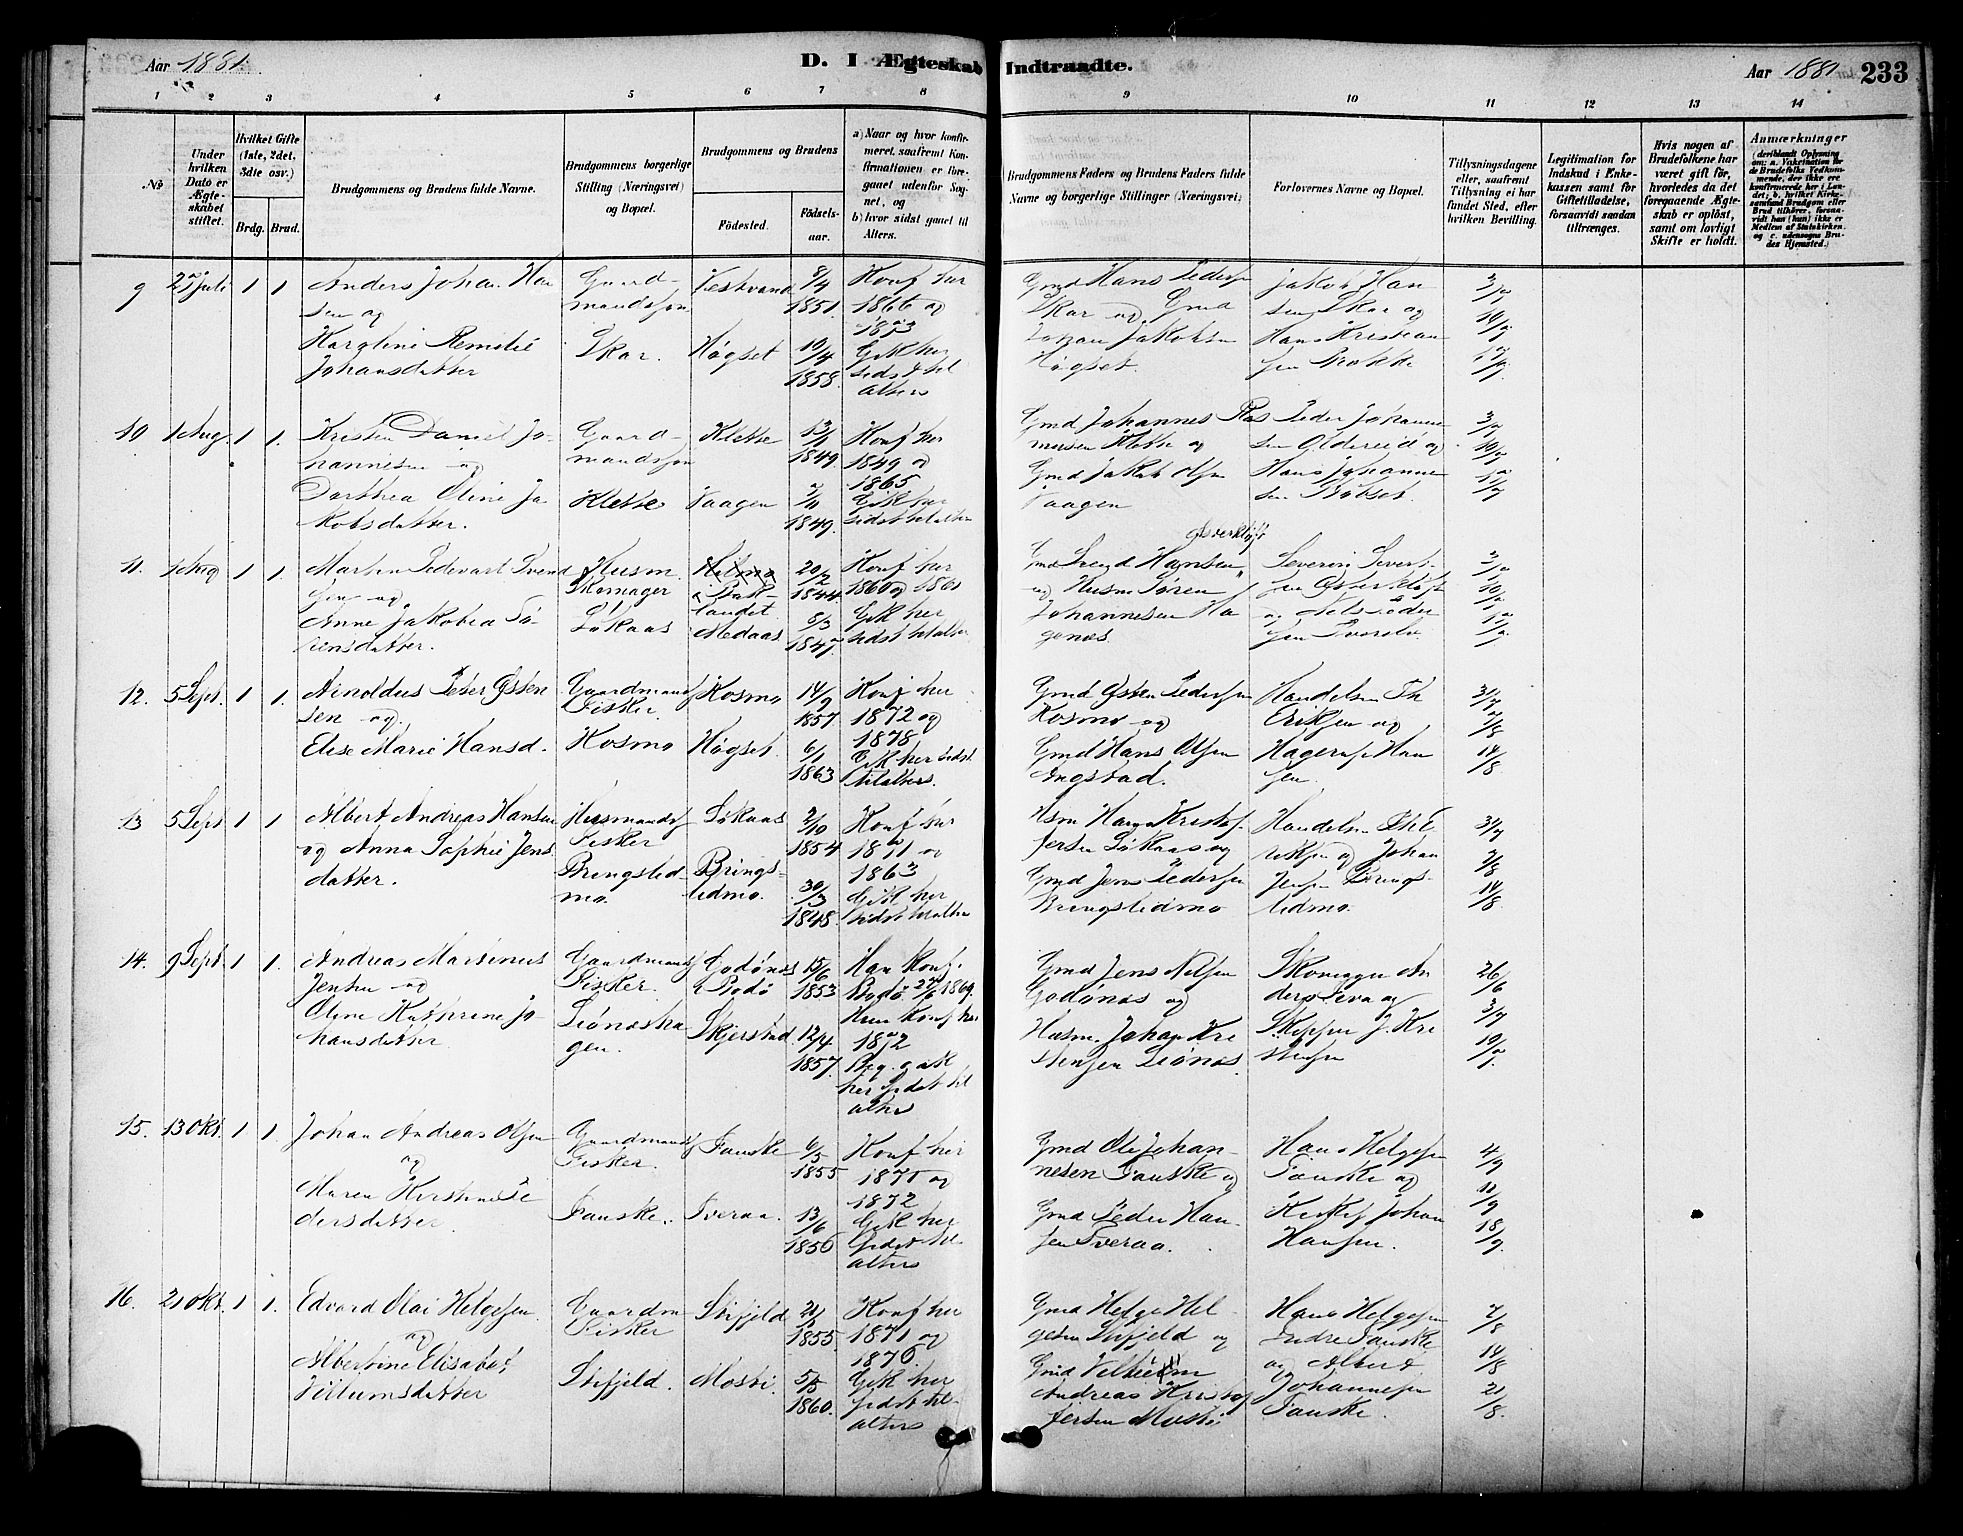 Aar 1881.
D. I Ægteskab Indtraadte.
Aar 1881
233
1 2 3 4 5 6 7 8 9 10 11 12 13 14
№
Under hvilken Dato er Ægteskabet stiftet.
Hvilket Gifte (1ste, 2det, 3die osv.)
Brdg. Brud.
Brudgommens og Brudens fulde Navne.
Brudgommens borgerlige Stilling (Næringsvei) og Bopæl.
Brudgommens og Brudens
Födested.
Födsels-aar.
a) Naar og hvor konfirmeret, saafremt Konfirmationen er foregaaet udenfor Sognet, og
b) hvor sidst gaaet til Alters.
Brudgommens Faders og Brudens Faders fulde Navne og borgerlige Stillinger (Næringsvei)
Forlovernes Navne og Bopæl.
Tillysningsdagene eller, saafremt Tillysning ei har fundet Sted, efter hvilken Bevilling.
Legitimation for Indskud i Enkekassen samt for Giftetilladelse, forsaavidt saadan tiltrænges.
Hvis nogen af Brudefolkene har været gift før, hvorledes da det foregaaende Ægteskab er oplöst, samt om lovligt Skifte er holdt.
Anmærkninger
9 25 juli 1 1 Anders Johan Han
sen og
Karoline Remelie
Johansdatter
Gaard-
mandssøn
Skar.
Vestvand 8/4 1851.
Høgset 19/4 1858.
Konf her
1866 og
1873
Gik her
sidst til
alters
Gmd Hans Peders
Skar og Gmd
Johan Jakobsen
Høgset.
Jakob Han
sen Skar og
Hans Kristian
sen
3/7
10/7
17/7
10 1 Aug. 1 1. Kristen Daniel Jo-
hannesen og
Dorthea Oline Ja
kobsdatter.
Gaard-
mandssøn
Klette
Klette 1849.
Vaagen 1849.
Konf her
1849 og
1865
Gik her
sidst til alter
Gmd Johannes Ras
musen Klette og
Gmd Jakob Olsen
Vaagen
Peder Johanne
sen Oldereid og
Hans Johanne
sen
3/7
10/7
17/7
11. 1 Aug 1 1. Morten Edevart Svend
sen og
Anne Jakobea Sø-
rensdatter.
Husm.
Skomager
Løkaas
20/2 1844.
Medaas 8/3 1847.
Konf her
1860 og 1861
Gik her
sidst til alter
Østerkløft
Gmd Svend Hansen
og Husm Søren
Johannesen Ha
genæs.
Severin Sivert-
sen Østerkløft
og Nels Peder
sen Tverelv.
3/7
10/7
17/7
12. 5 Sept. 1 1. Arnoldus Peter Østen
sen og
Elise Marie Hansd.
Gaardmands
Fisker.
Kosmo
Kosmo 14/9 1857
Høgset. 6/1 1863
Konf her
1872 og
1878
Gik her sidst
til alters.
Gmd Østen Pedersen
Kosmo og
Gmd Hans Olsen
Angstad.
Handelsm Th
Eriksen og
Hagerup Han
sen.
31/7
7/8
14/8
13 5 Sept 1 1 Albert Andreas Hansen
og Anna Sophie Jens
datter.
Husmandss
Fisker
Bringslid-
mo.
Løkaas 2/10 1854
Brings-
lidmo. 30/3 1848.
Konf her
1871 og
1863
Gik her
sidst til alter
Hsm Hans Kristof-
fersen Løkaas og
Gmd Jens Pedersen
Bringslidmo
Handelsm Th E
riksen og Johan
Jensen Brings-
lidmo.
31/7
7/8
14/8
14. 9 Sept 1 1. Andreas Martinus
Jensen og
Oline Kathrine Jo-
hansdatter
Gaardmands
Fisker.
Leønesha
gen.
Godønes
i Bodø 15/6 1853
Skjerstad 12/4 1857.
Han konf.
Bodø 1869.
Hun konf her
1872
Beg. gik
her sidst til
alters
Gmd Jens Nilsen
Godønæs og
Husm. Johan Kri
stensen Leønæs.
Skomager An
ders Leva og
Skipper J. Kri
stensen
26/6
3/7
10/7.
15. 13 Okt. 1 1. Johan Andreas Olsen
og
Maren Kirstine Pe
dersdatter
Gaardmands
Fisker.
Fauske.
Fauske 6/5 1855
Tveraa. 13/6 1856
Konf her
1871 og
1872
Gik her
sidst til
alters
Gmd Ole Johan-
nesen Fauske og
Gmd Peder Han-
sen Tveraa.
Hans Helgesen
Fauske og
Kirkes. Johan
Hansen.
4/9
11/9
18/9
16. 21 Okt. 1 1. Edvard Olai Helgesen
og
Albertine Elisabet
Villumsdatter
Gaardm
Fisker
Stifjeld.
Stifjeld 1855.
Mosti. 5/5 1860.
Konf her
1871 og
1876.
Gik her
sidst til-
alters
Gmd Helge Hel-
gesen Stifjeld og
Gmd Vilhelm
Andreas Kristof
fersen Mosti
Hans Helgesen
Indre Fauske
og Albert
Johannesen
Fauske.
7/8
14/8
21/8.